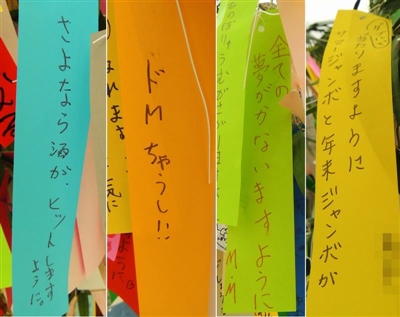 さよなら酒が、ヒットします
ように。
ドMちゃうし!!
全ての
夢がかないますように
M.M
ジャンボと年末ジャンボが
りますように